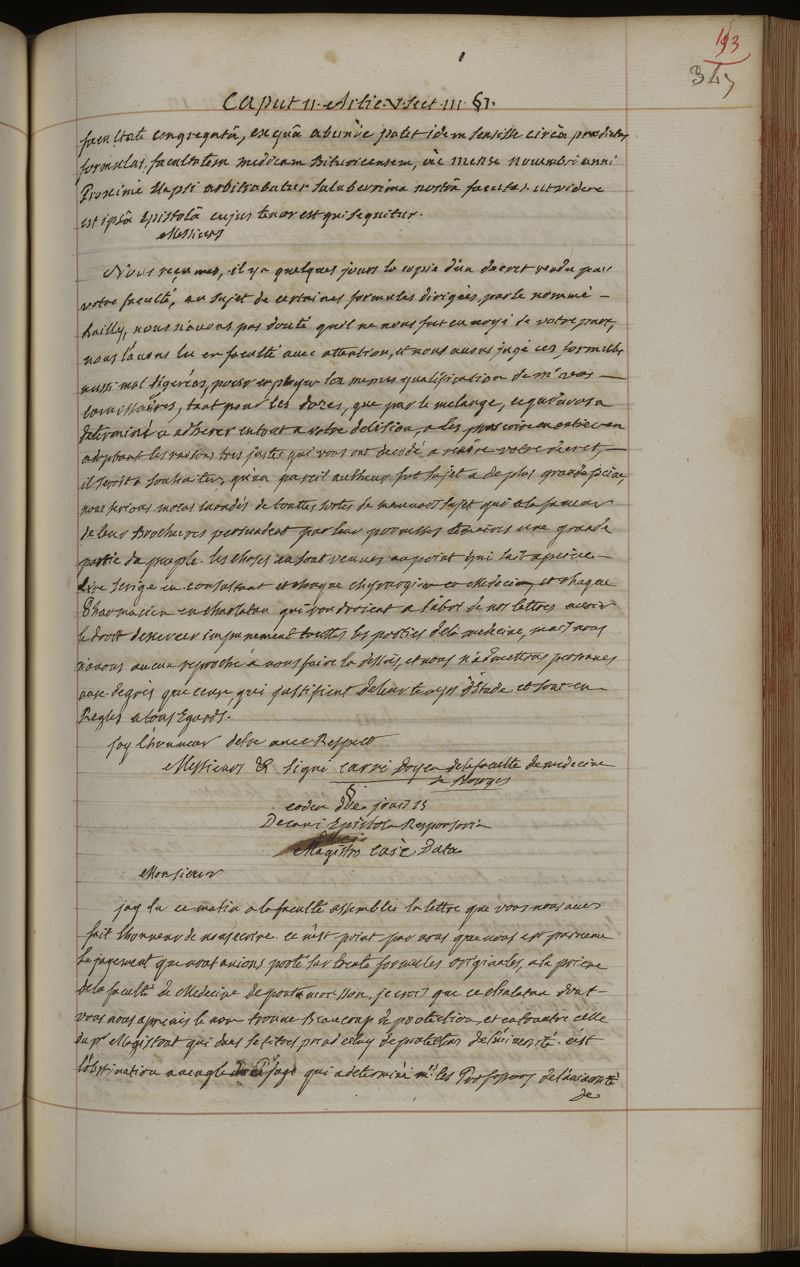 193
347
Caput II. Artic. V. Sect. III. §I.
facultate congregatâ, ex quâ abunde patet idem sensisse circa praedictas
formulas, facultatem medicam Bituricensem, ac mense novembri anni
Proxime Elapsi arbitrabatur saluberrima nostra facultas. ut videre
est ipsâ Epistolâ cujus tenor est qui sequitur.
Messieurs
Nous reçumes, il y a quelques jours la copie d'un decret rendu par
votre faculté, au sujet de certaines formules dirigées par le nommé
Bailly, nous n'avons pas douté quil ne nous fut envoyé de votre part,
nous l'avons lu en faculté avec attention, et nous avons jugé ces formules
aussi mal digerées, pour employer les memes qualification de mrs vos
commissaires, tant pour les dozes, que par le melange, ce qui nous a
determiné a adherer en tout a votre decision, a les proscrire en entier en
adoptant les raisons tres justes qui vous ont decidé a rendre votre decret,
il seroit a souhaiter, qu'un pareil autheur fut sujet a de plus grandes peines,
nous serions moins inondés de touttes sortes de mauvais sujet qui a la faveur
de leur Brochures persuadent par leur promesses temeraires une grande
partie du peuple. les choses en sont venues au point qui
s'erige en consultant et chaque chyrurgien en Medecin, et chaque
Pharmacien en charlatan qui voudroient a l'abri de nos lettres avoir
le droit d'exercer impunement touttes les parties de la medecine, mais nous
n'avons aucun reproche à nous faire la dessus, et nous n'admettons personnes
aux degrés que ceux, qui justifient de leur temps d'Etude et sont en
Regles a tous Egards.
jay l'honneur d'etre avec Respect
Messieurs & signé carré Doyen de la faculté de medecine
de Bourges
§
eadem die jovis 15
Decani Epistola Responsoria
Magistro Data
Monsieur
jay lu ce matin a la faculté assemblée la lettre que vous nous avez
fait l'honneur de nous ecrire. ce n'est point par nous que vous est parvenu
le jugement que nous avions porté sur trente formules originales, a la priere
de la faculté de Medecine de pont a mousson. je crois que ce chalatan dont
vous nous apprenés le nom trouve Beaucoup de protection, et entr'autre celle
du pr Magistrat qui dans ses titres prend celuy de protecteur de l'université. c'est
l'obstination aveugle du juge qui a determiné mrs les Professeurs de l'université
de